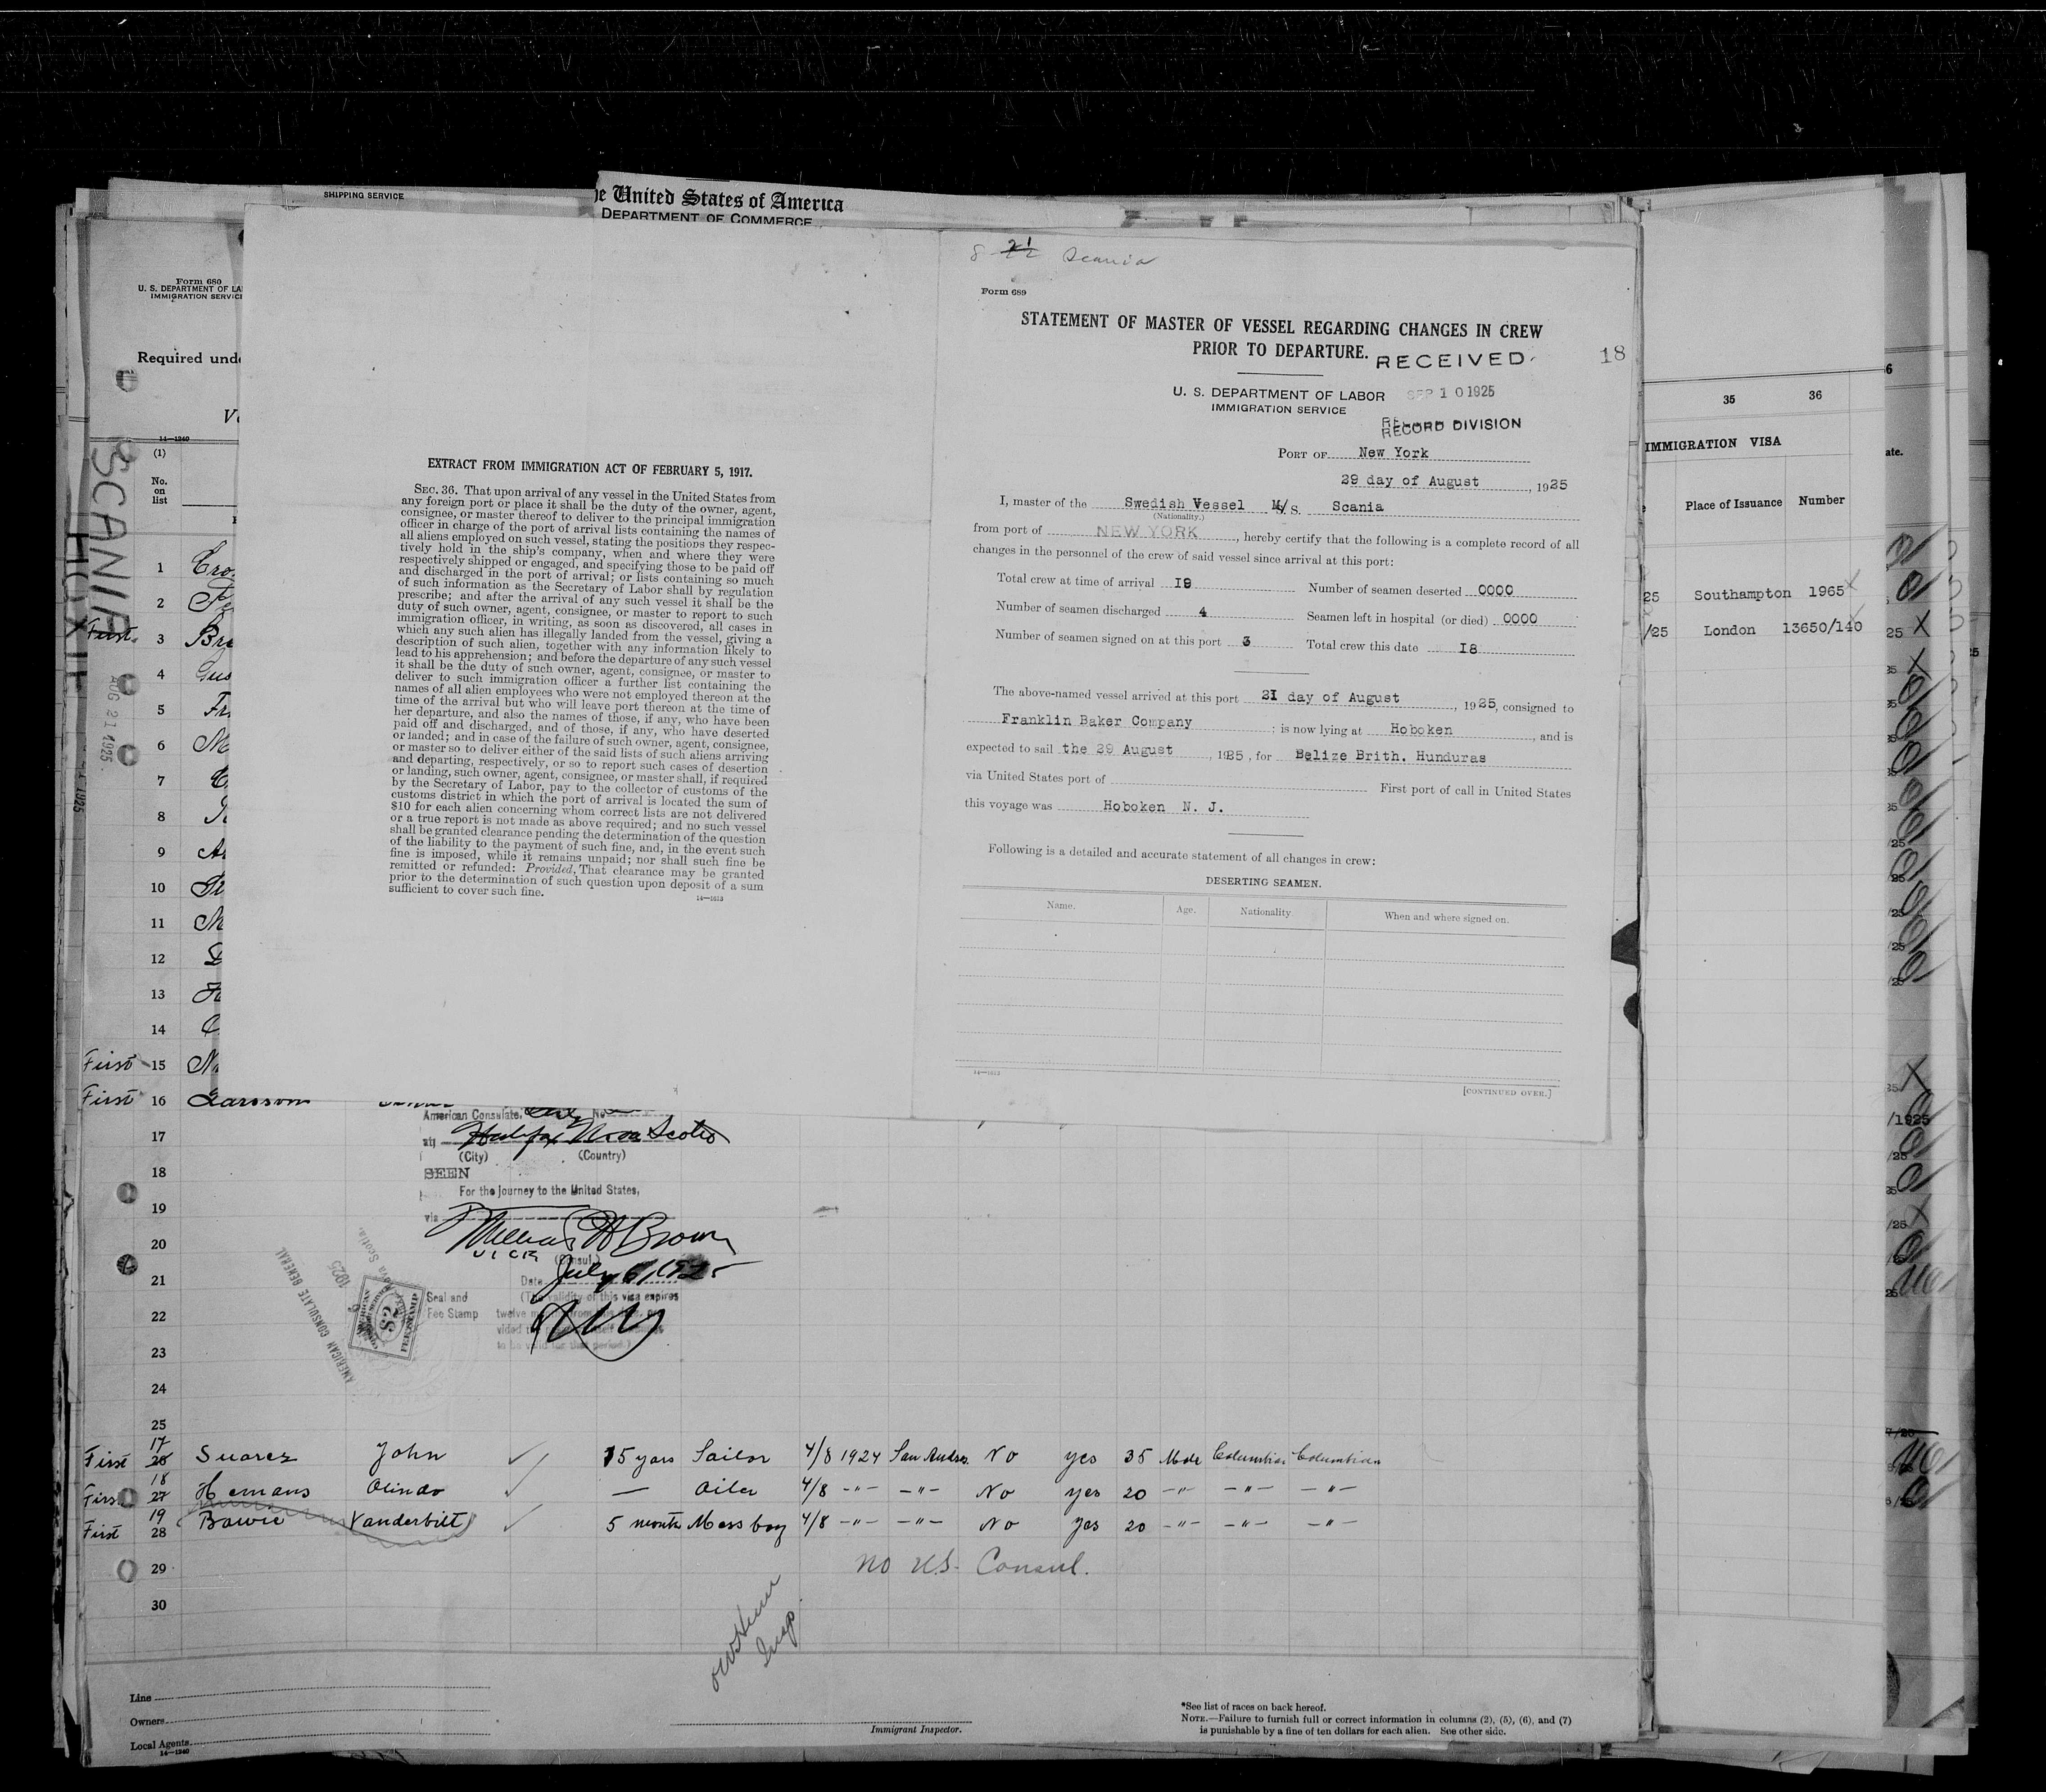 SHIPPING SERVICE
he United States of America
DEPARTMENT OF COMMERCE
Form 680
U. S. DEPARTMENT OF LA
IMMIGRATION SERVICE
Required unde
14—1240
(1)
No.
on
list
SCANIA
AUG 21 1925
1 Cro
2
First 3 Bre
4 Gus
5 Fr
6 M
7
8
9 A
10
11 M
12
13
14
First 15
First 16 Larsson
17
18
19
20
21
22
23
24
25
EXTRACT FROM IMMIGRATION ACT OF FEBRUARY 5, 1917.
SEC. 36. That upon arrival of any vessel in the United States from
any foreign port or place it shall be the duty of the owner, agent,
consignee, or master thereof to deliver to the principal immigration
officer in charge of the port of arrival lists containing the names of
all aliens employed on such vessel, stating the positions they respec-
tively hold in the ship's company, when and where they were
respectively shipped or engaged, and specifying those to be paid off
and discharged in the port of arrival; or lists containing so much
of such information as the Secretary of Labor shall by regulation
prescribe; and after the arrival of any such vessel it shall be the
duty of such owner, agent, consignee, or master to report to such
immigration officer, in writing, as soon as discovered, all cases in
which any such alien has illegally landed from the vessel, giving a
description of such alien, together with any information likely to
lead to his apprehension; and before the departure of any such vessel
it shall be the duty of such owner, agent, consignee, or master to
deliver to such immigration officer a further list containing the
names of all alien employees who were not employed thereon at the
time of the arrival but who will leave port thereon at the time of
her departure, and also the names of those, if any, who have been
paid off and discharged, and of those, if any, who have deserted
or landed; and in case of the failure of such owner, agent, consignee,
or master so to deliver either of the said lists of such aliens arriving
and departing, respectively, or so to report such cases of desertion
or landing, such owner, agent, consignee, or master shall, if required
by the Secretary of Labor, pay to the collector of customs of the
customs district in which the port of arrival is located the sum of
$10 for each alien concerning whom correct lists are not delivered
or a true report is not made as above required; and no such vessel
shall be granted clearance pending the determination of the question
of the liability to the payment of such fine, and, in the event such
fine is imposed, while it remains unpaid; nor shall such fine be
remitted or refunded: Provided, That clearance may be granted
prior to the determination of such question upon deposit of a sum
sufficient to cover such fine.
14—1653
8 21 Scania
Form 689
STATEMENT OF MASTER OF VESSEL REGARDING CHANGES IN CREW
PRIOR TO DEPARTURE.
RECEIVED
18
U. S. DEPARTMENT OF LABOR
SEP 10 1925
IMMIGRATION SERVICE
RECORD DIVISION
PORT OF New York
29 day of August, 1925
I, master of the Swedish Vessel M/S. Scania
(Nationality.)
from port of NEW YORK, hereby certify that the following is a complete record of all
changes in the personnel of the crew of said vessel since arrival at this port:
Total crew at time of arrival I9 Number of seamen deserted 0000
Number of seamen discharged 4 Seamen left in hospital (or died) 0000
Number of seamen signed on at this port 3 Total crew this date I8
The above-named vessel arrived at this port 2I day of August, 1925, consigned to
Franklin Baker Company; is now lying at Hoboken, and is
expected to sail the 29 August, 1925, for Belize Brith. Hunduras
via United States port of First port of call in United States
this voyage was Hoboken N. J.
Following is a detailed and accurate statement of all changes in crew:
DESERTING SEAMEN.
Name. Age. Nationality When and where signed on.
14—1653
[CONTINUED OVER.]
35 36
IMMIGRATION VISA
Place of Issuance Number
25 Southampton 1965
/25 London 13650/140
American Consulate, No
at Halifax Nova Scotia
(City) (Country)
SEEN
For the journey to the United States,
via
William H Brown
(Consul.)
Date July 6, 1925
Seal and
Fee Stamp
(The validity of this visa expires
AMERICAN CONSULATE GENERAL
$2
First 17 26 Suarez John 15 years Sailor 4/8 1924 San Andres No yes 35 Male Columbian Columbian
First 18 27 Hemans Olindo — Oiler 4/8 -"- -"- No yes 20 -"- -"- -"-
First 19 28 Bowie Vanderbilt 5 month Mess boy 4/8 -"- -"- No yes 20 -"- -"- -"-
29 no U.S. Consul.
30
Insp
Line
Owners
Local Agents
14—1240
Immigrant Inspector.
*See list of races on back hereof.
NOTE.—Failure to furnish full or correct information in columns (2), (5), (6), and (7)
is punishable by a fine of ten dollars for each alien. See other side.